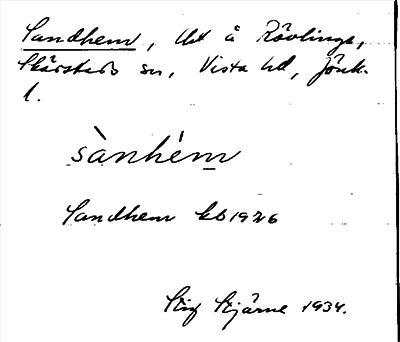 Sandhem, lht å Rövlinge,
Skärstads sn, Vista hd, Jönk.
l.
sànhém
Sandhem kb 1926
Stig Stjärne 1934.